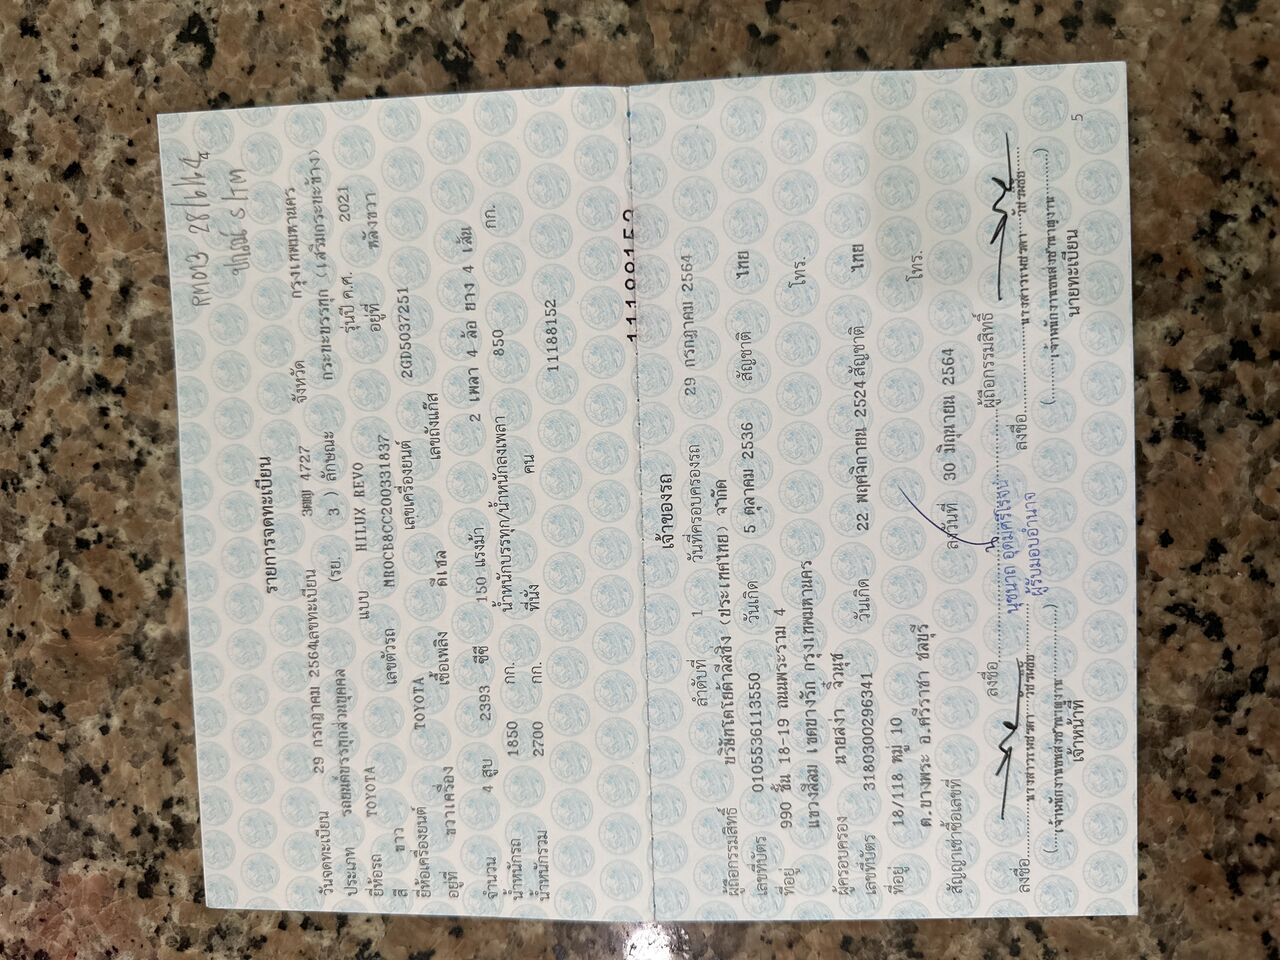 RM013 28/6/64
รายการจดทะเบียน
วันจดทะเบียน 29 กรกฎาคม 2564 เลขทะเบียน 3ฒญ 4727 จังหวัด กรุงเทพมหานคร
ประเภท รถยนต์บรรทุกส่วนบุคคล (รย. 3 ) ลักษณะ กระบะบรรทุก (เสริมกระบะข้าง)
ยี่ห้อรถ TOYOTA แบบ HILUX REVO รุ่นปี ค.ศ. 2021
สี ขาว เลขตัวรถ MR0CB8CC200331837 อยู่ที่ หลังขวา
ยี่ห้อเครื่องยนต์ TOYOTA เลขเครื่องยนต์ 2GD5037251
อยู่ที่ ขวาเครื่อง เชื้อเพลิง ดีเซล เลขถังแก๊ส
จำนวน 4 สูบ 2393 ซีซี 150 แรงม้า 2 เพลา 4 ล้อ ยาง 4 เส้น
น้ำหนักรถ 1850 กก. น้ำหนักบรรทุก/น้ำหนักลงเพลา 850 กก.
น้ำหนักรวม 2700 กก. ที่นั่ง คน 11188152
11188152
เจ้าของรถ
ลำดับที่ 1 วันที่ครอบครองรถ 29 กรกฎาคม 2564
ผู้ถือกรรมสิทธิ์ บริษัทโตโยต้าลีสซิ่ง (ประเทศไทย) จำกัด
เลขที่บัตร 0105536113550 วันเกิด 5 ตุลาคม 2536 สัญชาติ ไทย
ที่อยู่ 990 ชั้น 18-19 ถนนพระราม 4
แขวงสีลม เขตบางรัก กรุงเทพมหานคร โทร.
ผู้ครอบครอง นายสง่า จิ๋วนุช
เลขที่บัตร 3180300296341 วันเกิด 22 พฤศจิกายน 2524 สัญชาติ ไทย
ที่อยู่ 18/118 หมู่ 10
ต.บางพระ อ.ศรีราชา ชลบุรี โทร.
สัญญาเช่าซื้อเลขที่ ลงวันที่ 30 มิถุนายน 2564
ลงชื่อ ผู้ถือกรรมสิทธิ์
นุชนาถ อุดมศรีโรจน์
ผู้รับมอบอำนาจ
ลงชื่อ
ลงชื่อ
เจ้าหน้าที่
นายทะเบียน
5